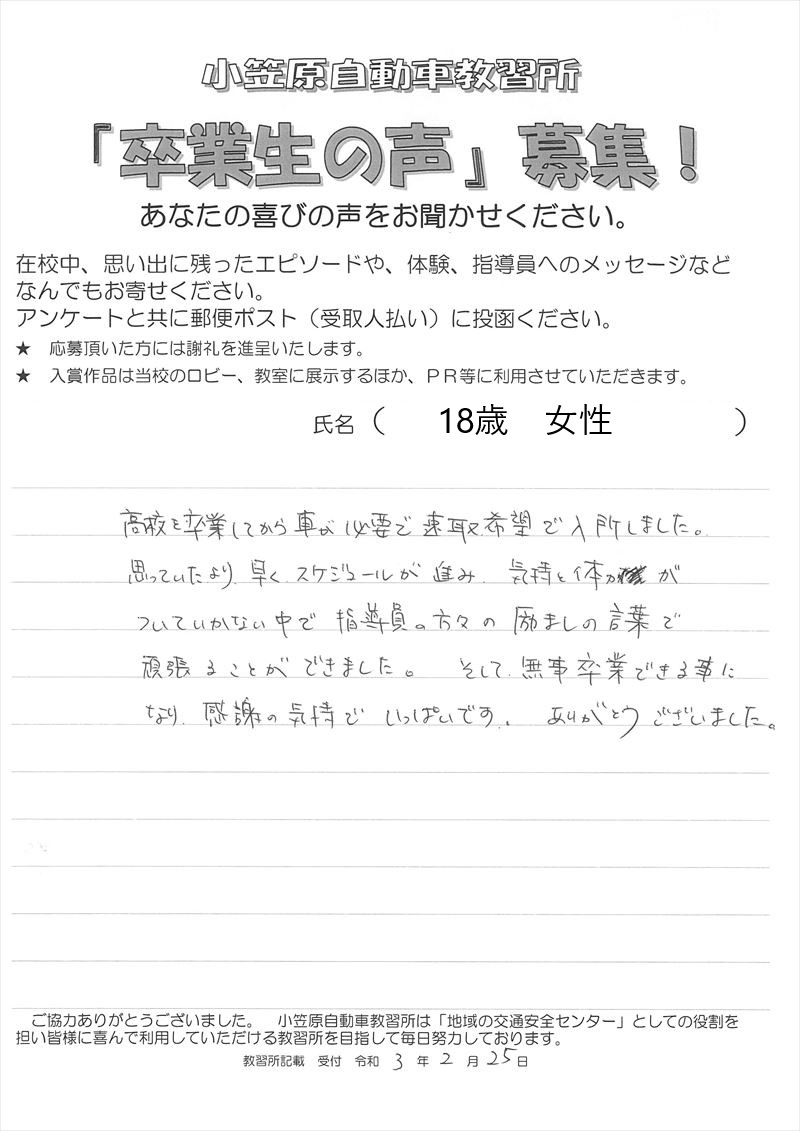 小笠原自動車教習所
『卒業生の声』募集！
あなたの喜びの声をお聞かせください。
在校中、思い出に残ったエピソードや、体験、指導員へのメッセージなど
なんでもお寄せください。
アンケートと共に郵便ポスト（受取人払い）に投函ください。
★　応募頂いた方には謝礼を進呈いたします。
★　入賞作品は当校のロビー、教室に展示するほか、ＰＲ等に利用させていただきます。
氏名（　18歳　女性　）
高校を卒業してから車が必要で速取希望で入所しました。
思っていたより、早くスケジュールが進み、気持と体が
ついていかない中で指導員の方々の励ましの言葉で
頑張ることができました。そして、無事卒業できる事に
なり、感謝の気持でいっぱいです。ありがとうございました。
ご協力ありがとうございました。　小笠原自動車教習所は「地域の交通安全センター」としての役割を
担い皆様に喜んで利用していただける教習所を目指して毎日努力しております。
教習所記載　受付　令和 3 年 2 月 25 日